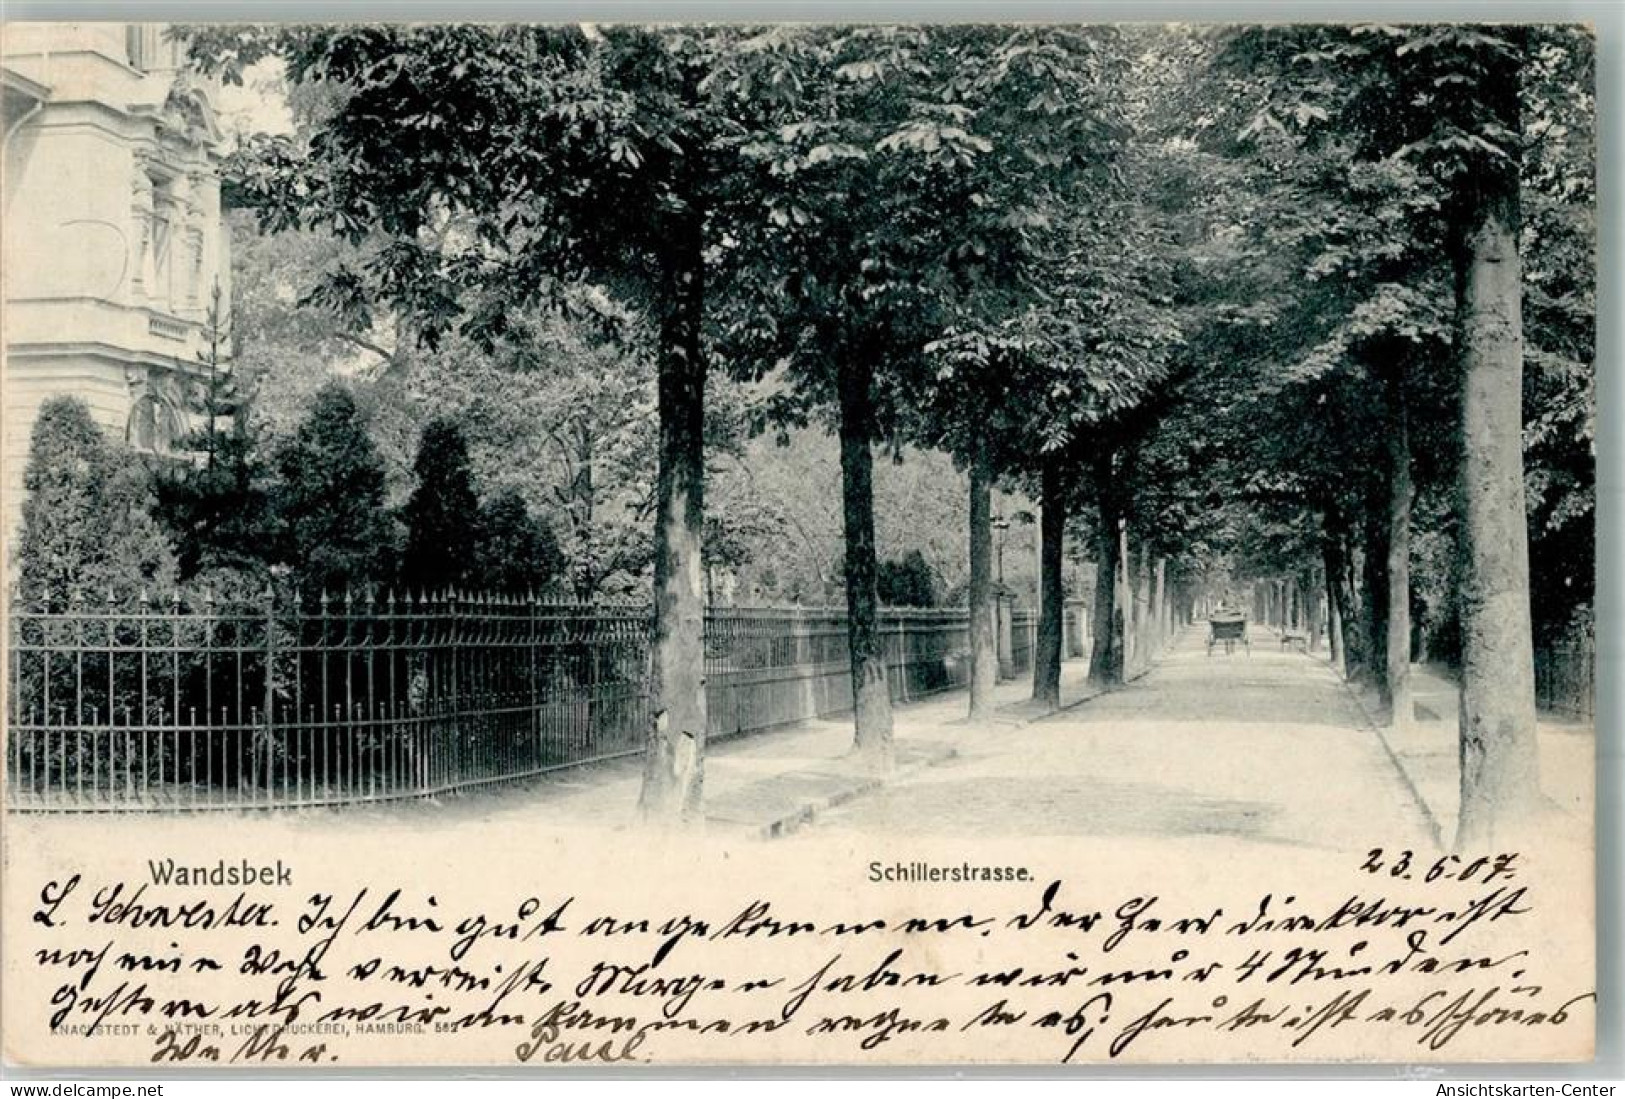 Wandsbek
Schillerstrasse.
23. 6. 07.
L. Schwester. Ich bin gut angekommen. Der Herr direktor ist
noch eine Woche verreist. Morgen haben wir nur 4 Stunden.
Gestern als wir ankammen regnete es; heute ist es schönes
Wetter. Paul.
KNACKSTEDT & NÄTHER, LICHTDRUCKEREI, HAMBURG. 562
Ansichtskarten-Center